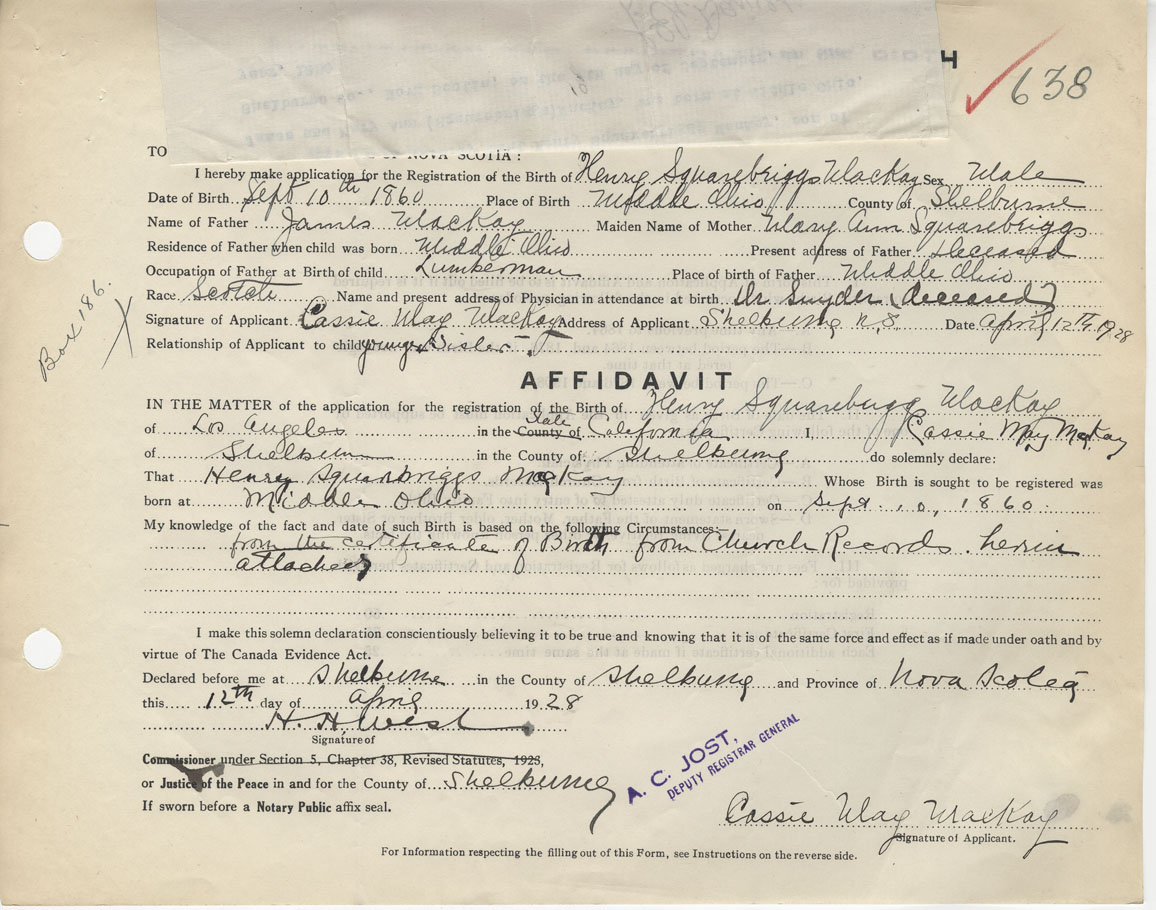 4
638
TO OF NOVA SCOTIA :
I hereby make application for the Registration of the Birth of Henry Squarebriggs MacKay Sex Male
Date of Birth Sept 10th 1860 Place of Birth Middle Ohio County of Shelburne
Name of Father James MacKay Maiden Name of Mother Mary Ann Squarebriggs
Residence of Father when child was born Middle Ohio Present address of Father Deceased
Occupation of Father at Birth of child Lumberman Place of birth of Father Middle Ohio
Race Scotch Name and present address of Physician in attendance at birth Dr Snyder (deceased)
Signature of Applicant Cassie May MacKay Address of Applicant Shelburne N.S. Date April 12th 1928
Relationship of Applicant to child young Sister
Box 186.
AFFIDAVIT
IN THE MATTER of the application for the registration of the Birth of Henry Squarebrigg MacKay
of Los Angeles in the County of State California I, Cassie May McKay
of Shelburne in the County of Shelburne do solemnly declare:
That Henry Squarbriggs MacKay Whose Birth is sought to be registered was
born at Middle Ohio on Sept. 10, 1860.
My knowledge of the fact and date of such Birth is based on the following Circumstances:—
from the certificate of Birth from Church Records herein
attached
I make this solemn declaration conscientiously believing it to be true and knowing that it is of the same force and effect as if made under oath and by
virtue of The Canada Evidence Act.
Declared before me at Shelburne in the County of Shelburne and Province of Nova Scotia
this 12th day of April 1928
H. H. West
Signature of
Commissioner under Section 5, Chapter 38, Revised Statutes, 1923,
or Justice of the Peace in and for the County of Shelburne
If sworn before a Notary Public affix seal.
A. C. JOST,
DEPUTY REGISTRAR GENERAL
Cassie May MacKay
Signature of Applicant.
For Information respecting the filling out of this Form, see Instructions on the reverse side.